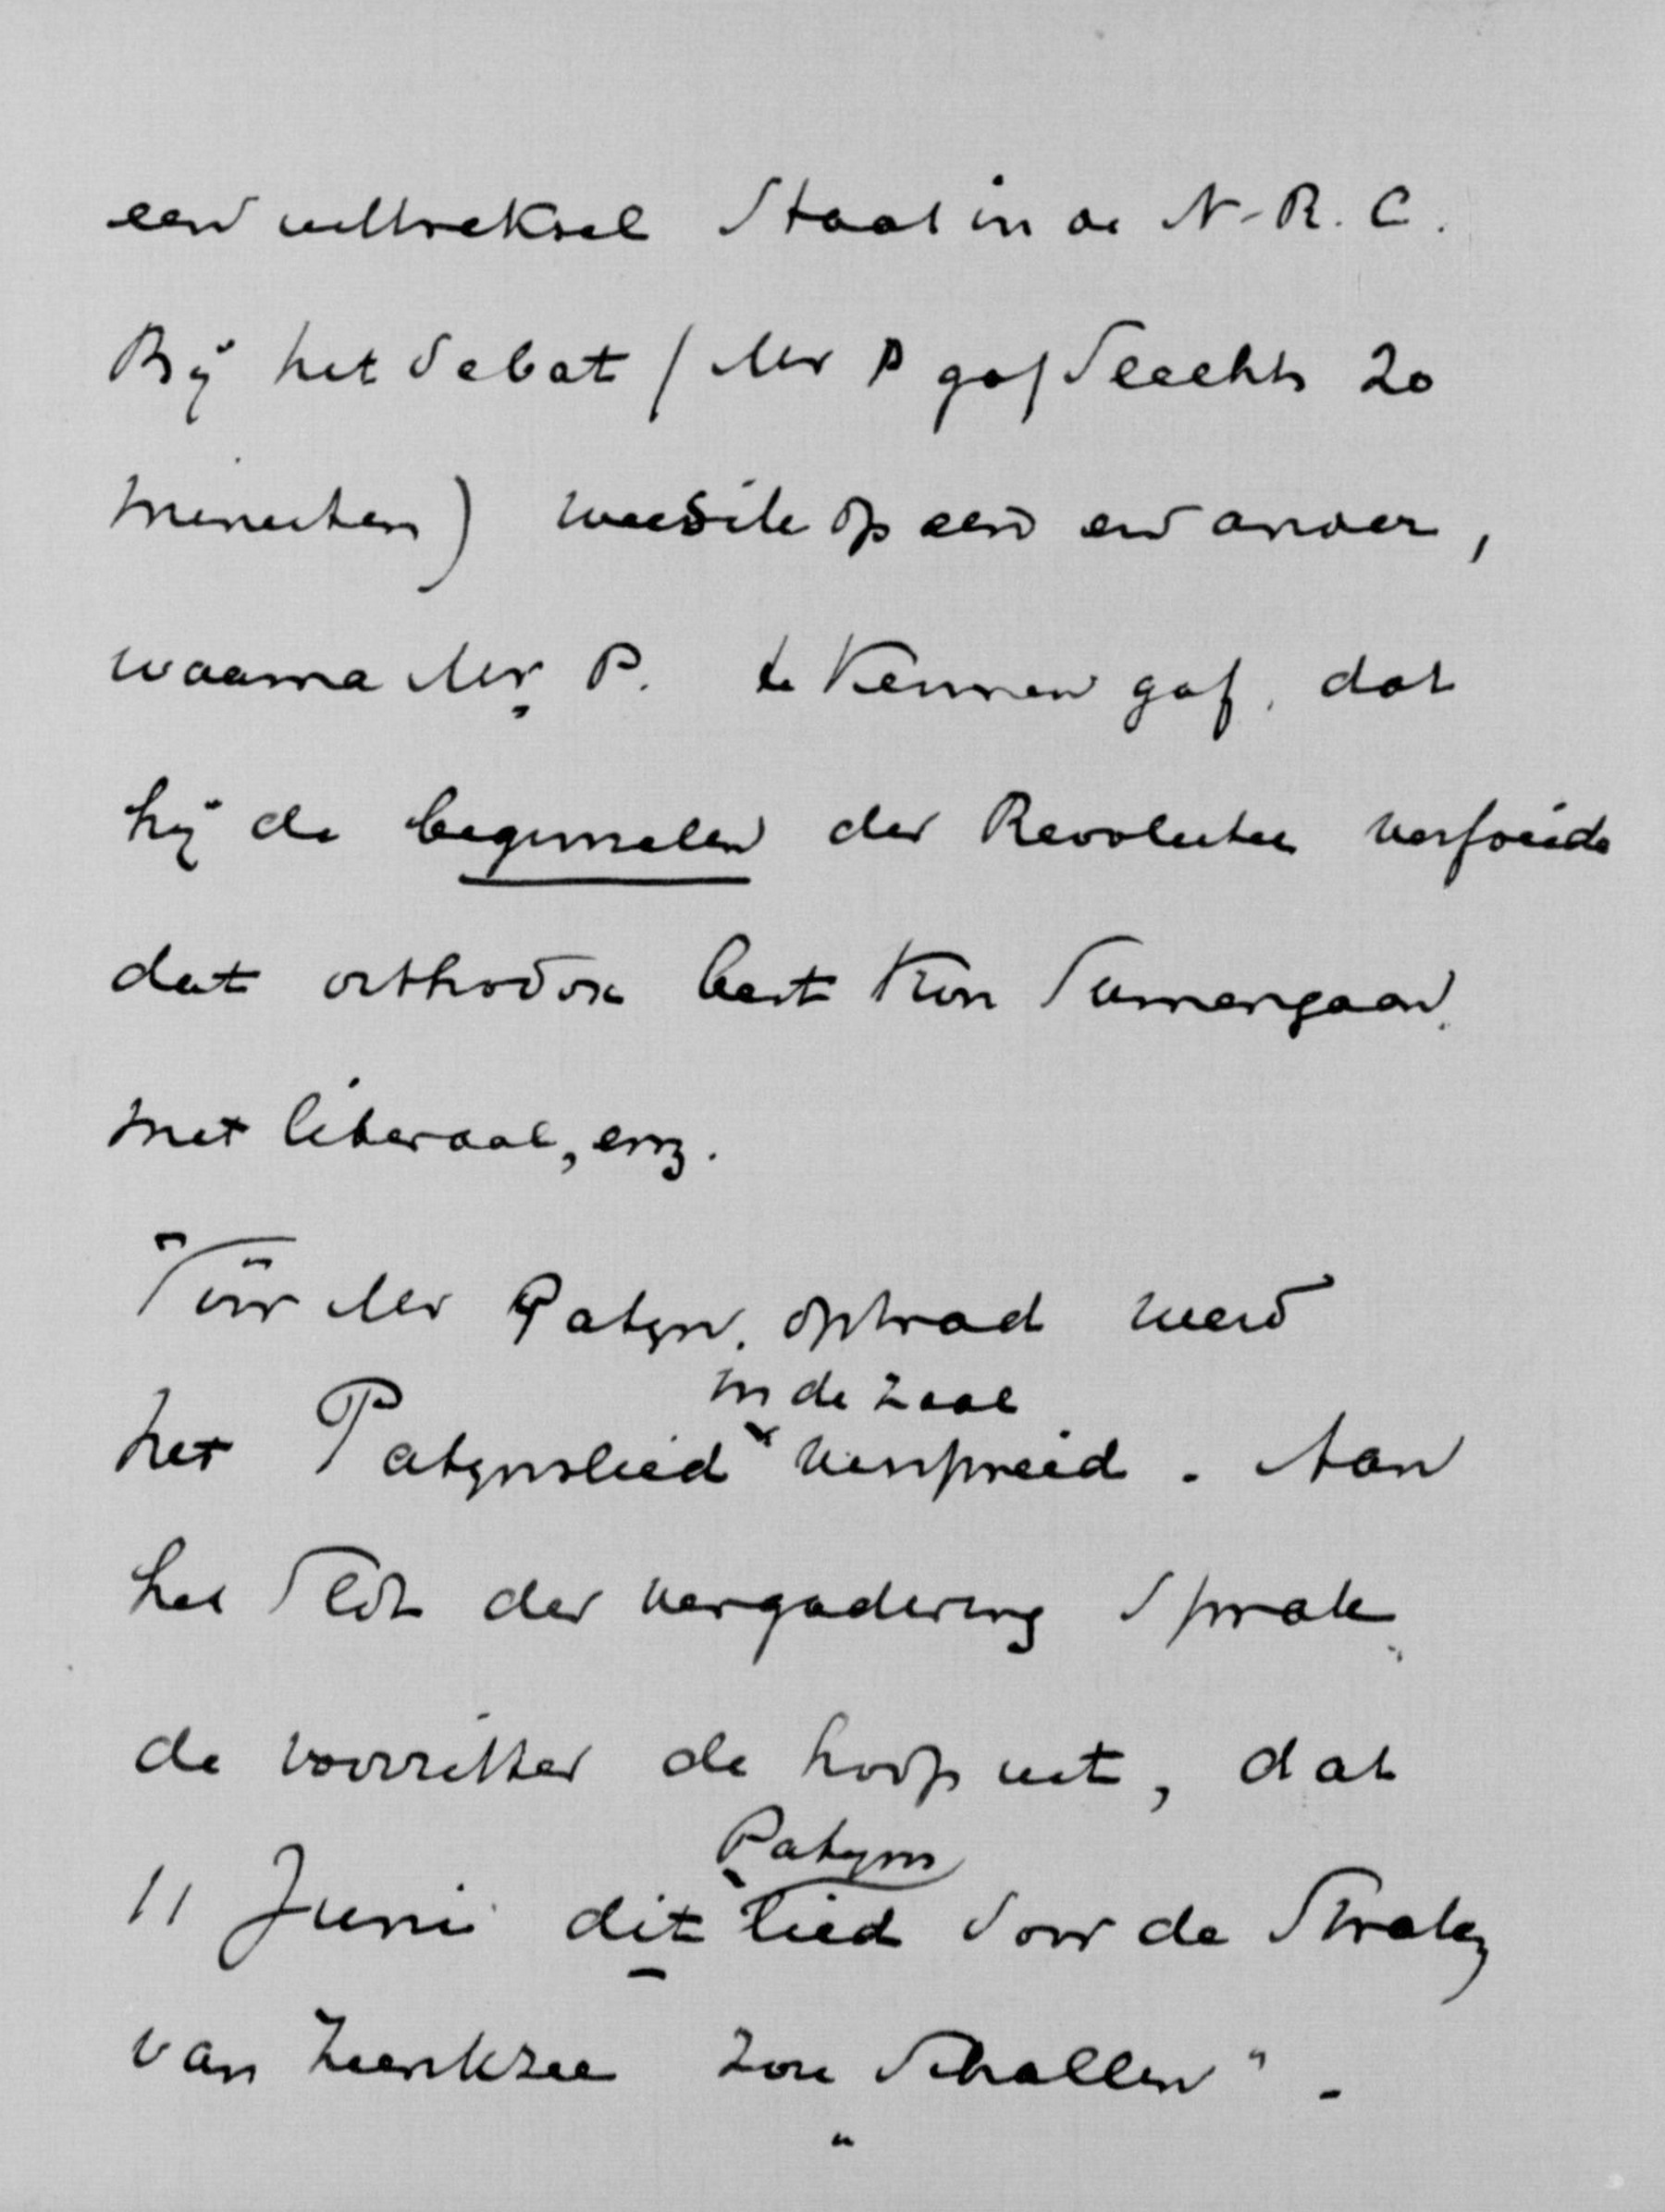 een uittreksel staat in de N.R.C.
Bij het debat (Mr P gaf slechts 20
minuten) wees ik op een en ander,
waarna Mr P. te kennen gaf, dat
hij de beginselen der Revolutie verfoeide
dat orthodox best kon samengaan
met liberaal, enz.
Vóór Mr Patijn optrad werd
in de zaal
het Patijnslied verspreid. Aan
het slot der vergadering sprak
de voorzitter de hoop uit, dat
Patijns
11 Juni dit lied door de straten
van Zierikzee zou schallen".